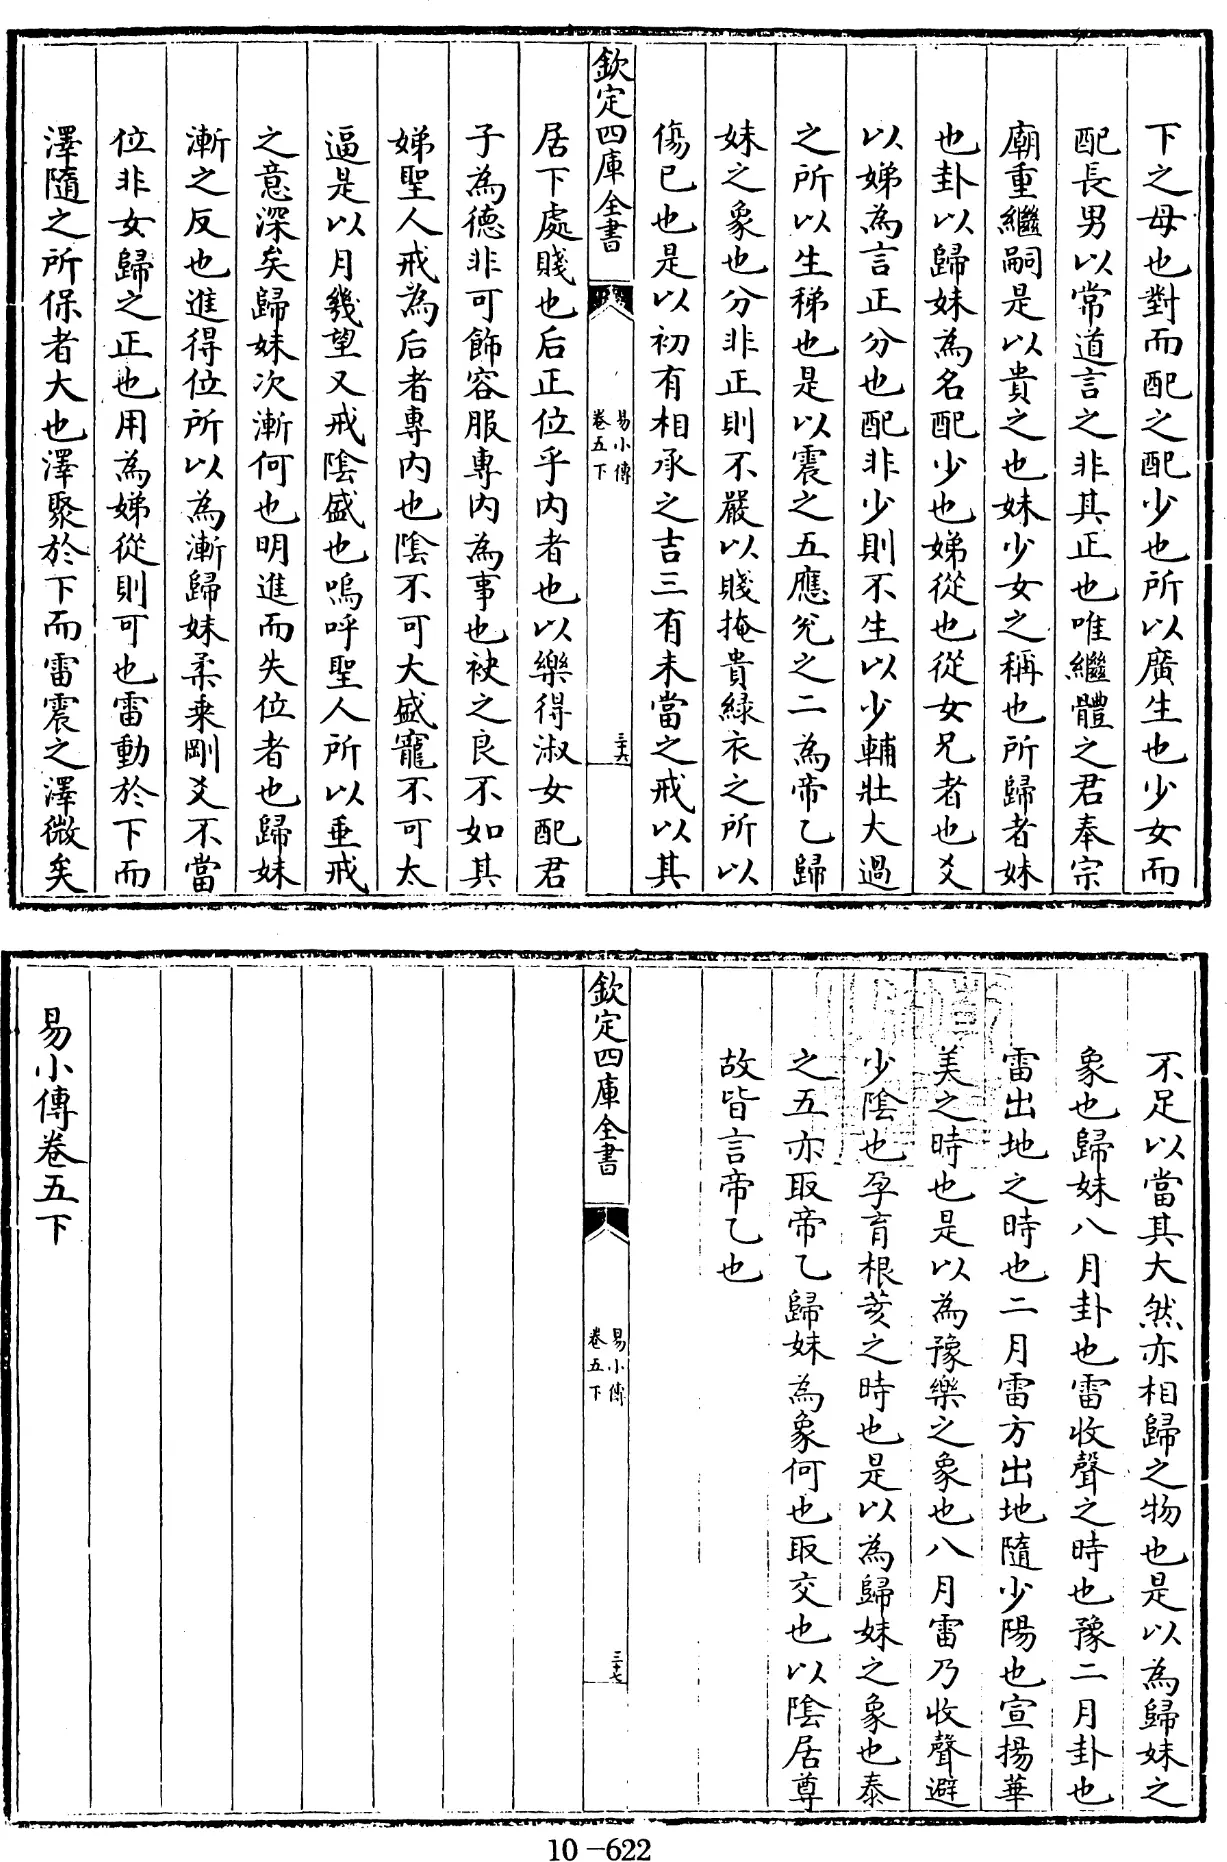 下之母也對而配之配少也所以廣生也少女而
配長男以常道言之非其正也唯繼體之君奉宗
廟重繼嗣是以貴之也妹少女之稱也所歸者妹
也卦以歸妹為名配少也娣從也從女兄者也爻
以娣為言正分也配非少則不生以少輔壯大過
之所以生稊也是以震之五應兊之二為帝乙歸
妹之象也分非正則不嚴以賤掩貴緑衣之所以
傷已也是以初有相承之吉三有未當之戒以其
欽定四庫全書
易小傳
卷五下
三十六
居下處賤也后正位乎内者也以樂得淑女配君
子為徳非可飾容服專内為事也袂之良不如其
娣聖人戒為后者專内也陰不可大盛寵不可太
逼是以月幾望又戒陰盛也嗚呼聖人所以垂戒
之意深矣歸妹次漸何也明進而失位者也歸妹
漸之反也進得位所以為漸歸妹柔乗剛爻不當
位非女歸之正也用為娣從則可也雷動於下而
澤隨之所保者大也澤聚於下而雷震之澤微矣
不足以當其大然亦相歸之物也是以為歸妹之
象也歸妹八月卦也雷收聲之時也豫二月卦也
雷出地之時也二月雷方出地隨少陽也宣揚華
美之時也是以為豫樂之象也八月雷乃收聲避
少陰也孕育根荄之時也是以為歸妹之象也泰
之五亦取帝乙歸妹為象何也取交也以陰居尊
故皆言帝乙也
欽定四庫全書
易小傳
卷五下
三十七
易小傳卷五下
10-622